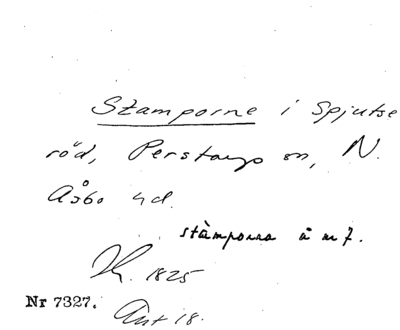 Stamporne i Spjutse
röd, Perstorps sn, N.
Åsbo hd.
stàmporna å m 7.
1825
Nr 7327.
Ant 18.